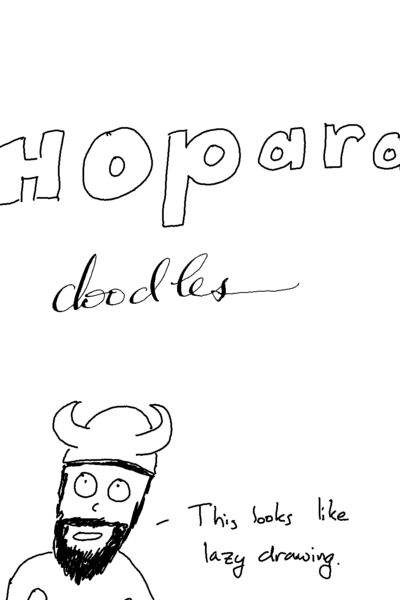 Hopara
doodles
– This looks like
lazy drawing.